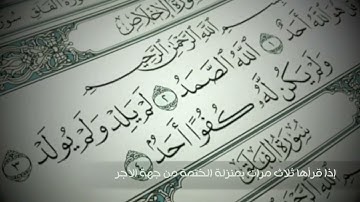 سُورَةُ الإِخْلَاصِ
بِسْمِ اللَّهِ الرَّحْمَٰنِ الرَّحِيمِ
هُوَ اللَّهُ أَحَدٌ ١
اللَّهُ الصَّمَدُ ٢ لَمْ يَلِدْ وَلَمْ يُولَدْ ٣
وَلَمْ يَكُنْ لَهُ كُفُوًا أَحَدٌ ٤
سُورَةُ الْفَلَقِ
إذا قرأها ثلاث مرات بمنزلة الختمة من جهة الأجر